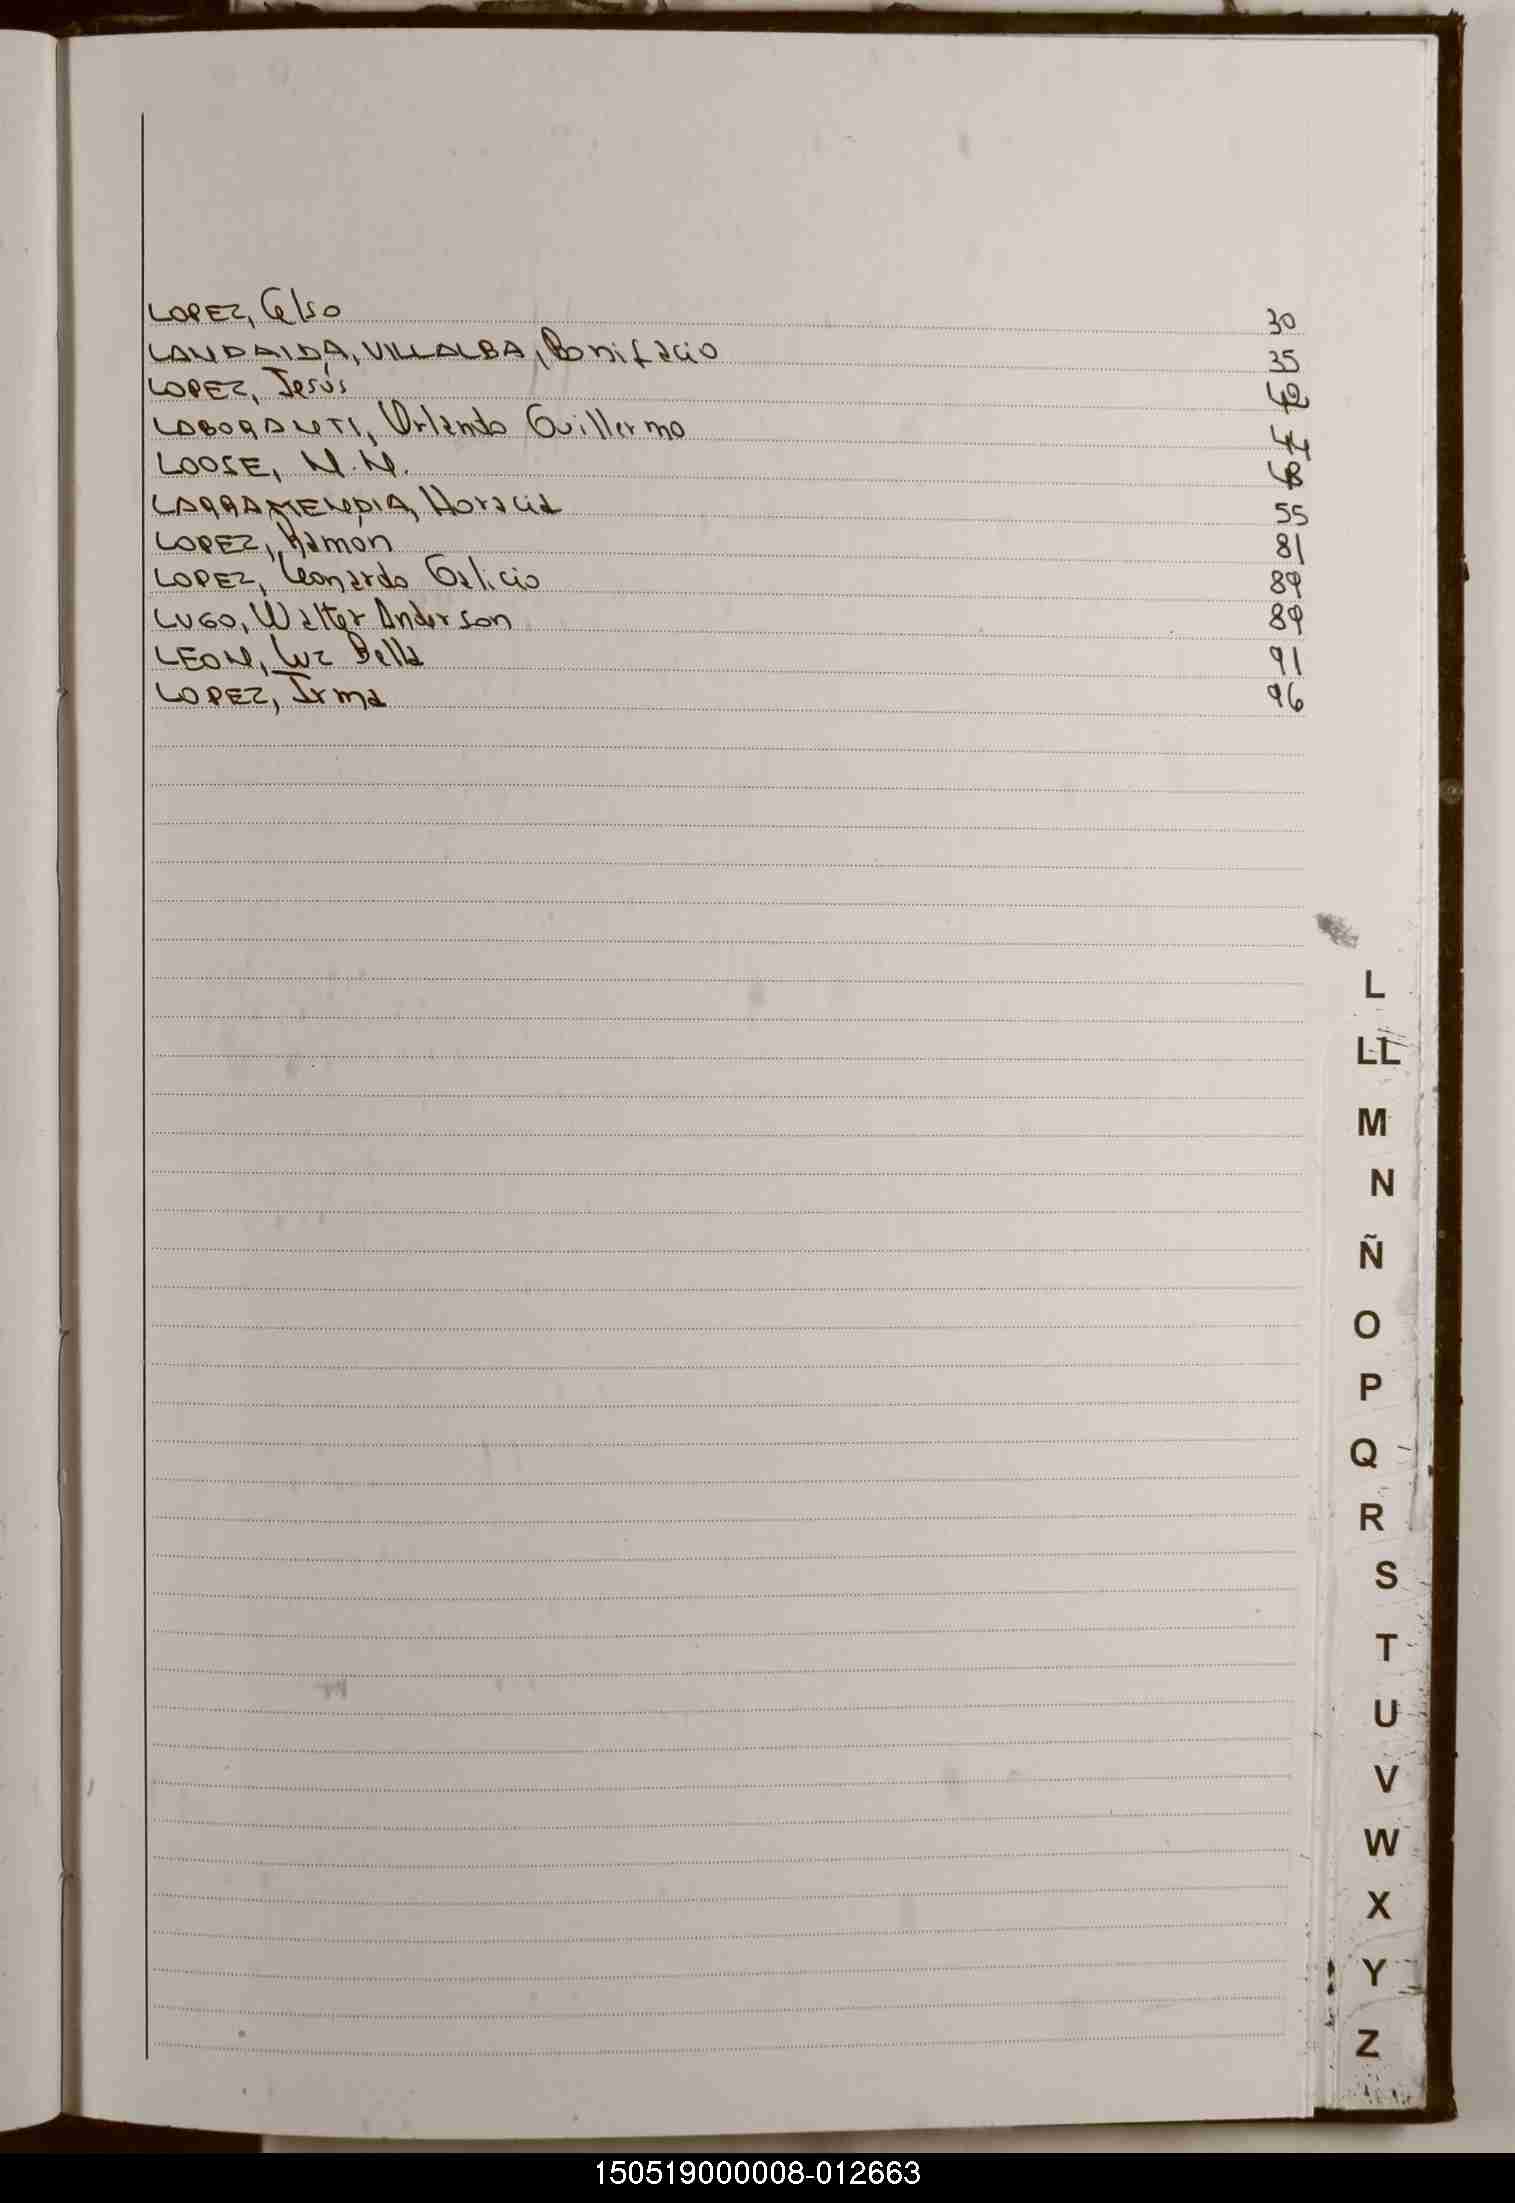 LOPEZ, Celso 30
LANDAIDA, VILLALBA, Bonifacio 35
LOPEZ, Jesús 42
LABORANTI, Orlando Guillermo 44
LOOSE, N.N. 48
LARRAMENDIA, Horacia 55
LOPEZ, Ramon 81
LOPEZ, Leonardo Galicio 89
LUGO, Walter Anderson 89
LEON, Luz Bella 91
LOPEZ, Irma 96
L
LL
M
N
Ñ
O
P
Q
R
S
T
U
V
W
X
Y
Z
150519000008-012663